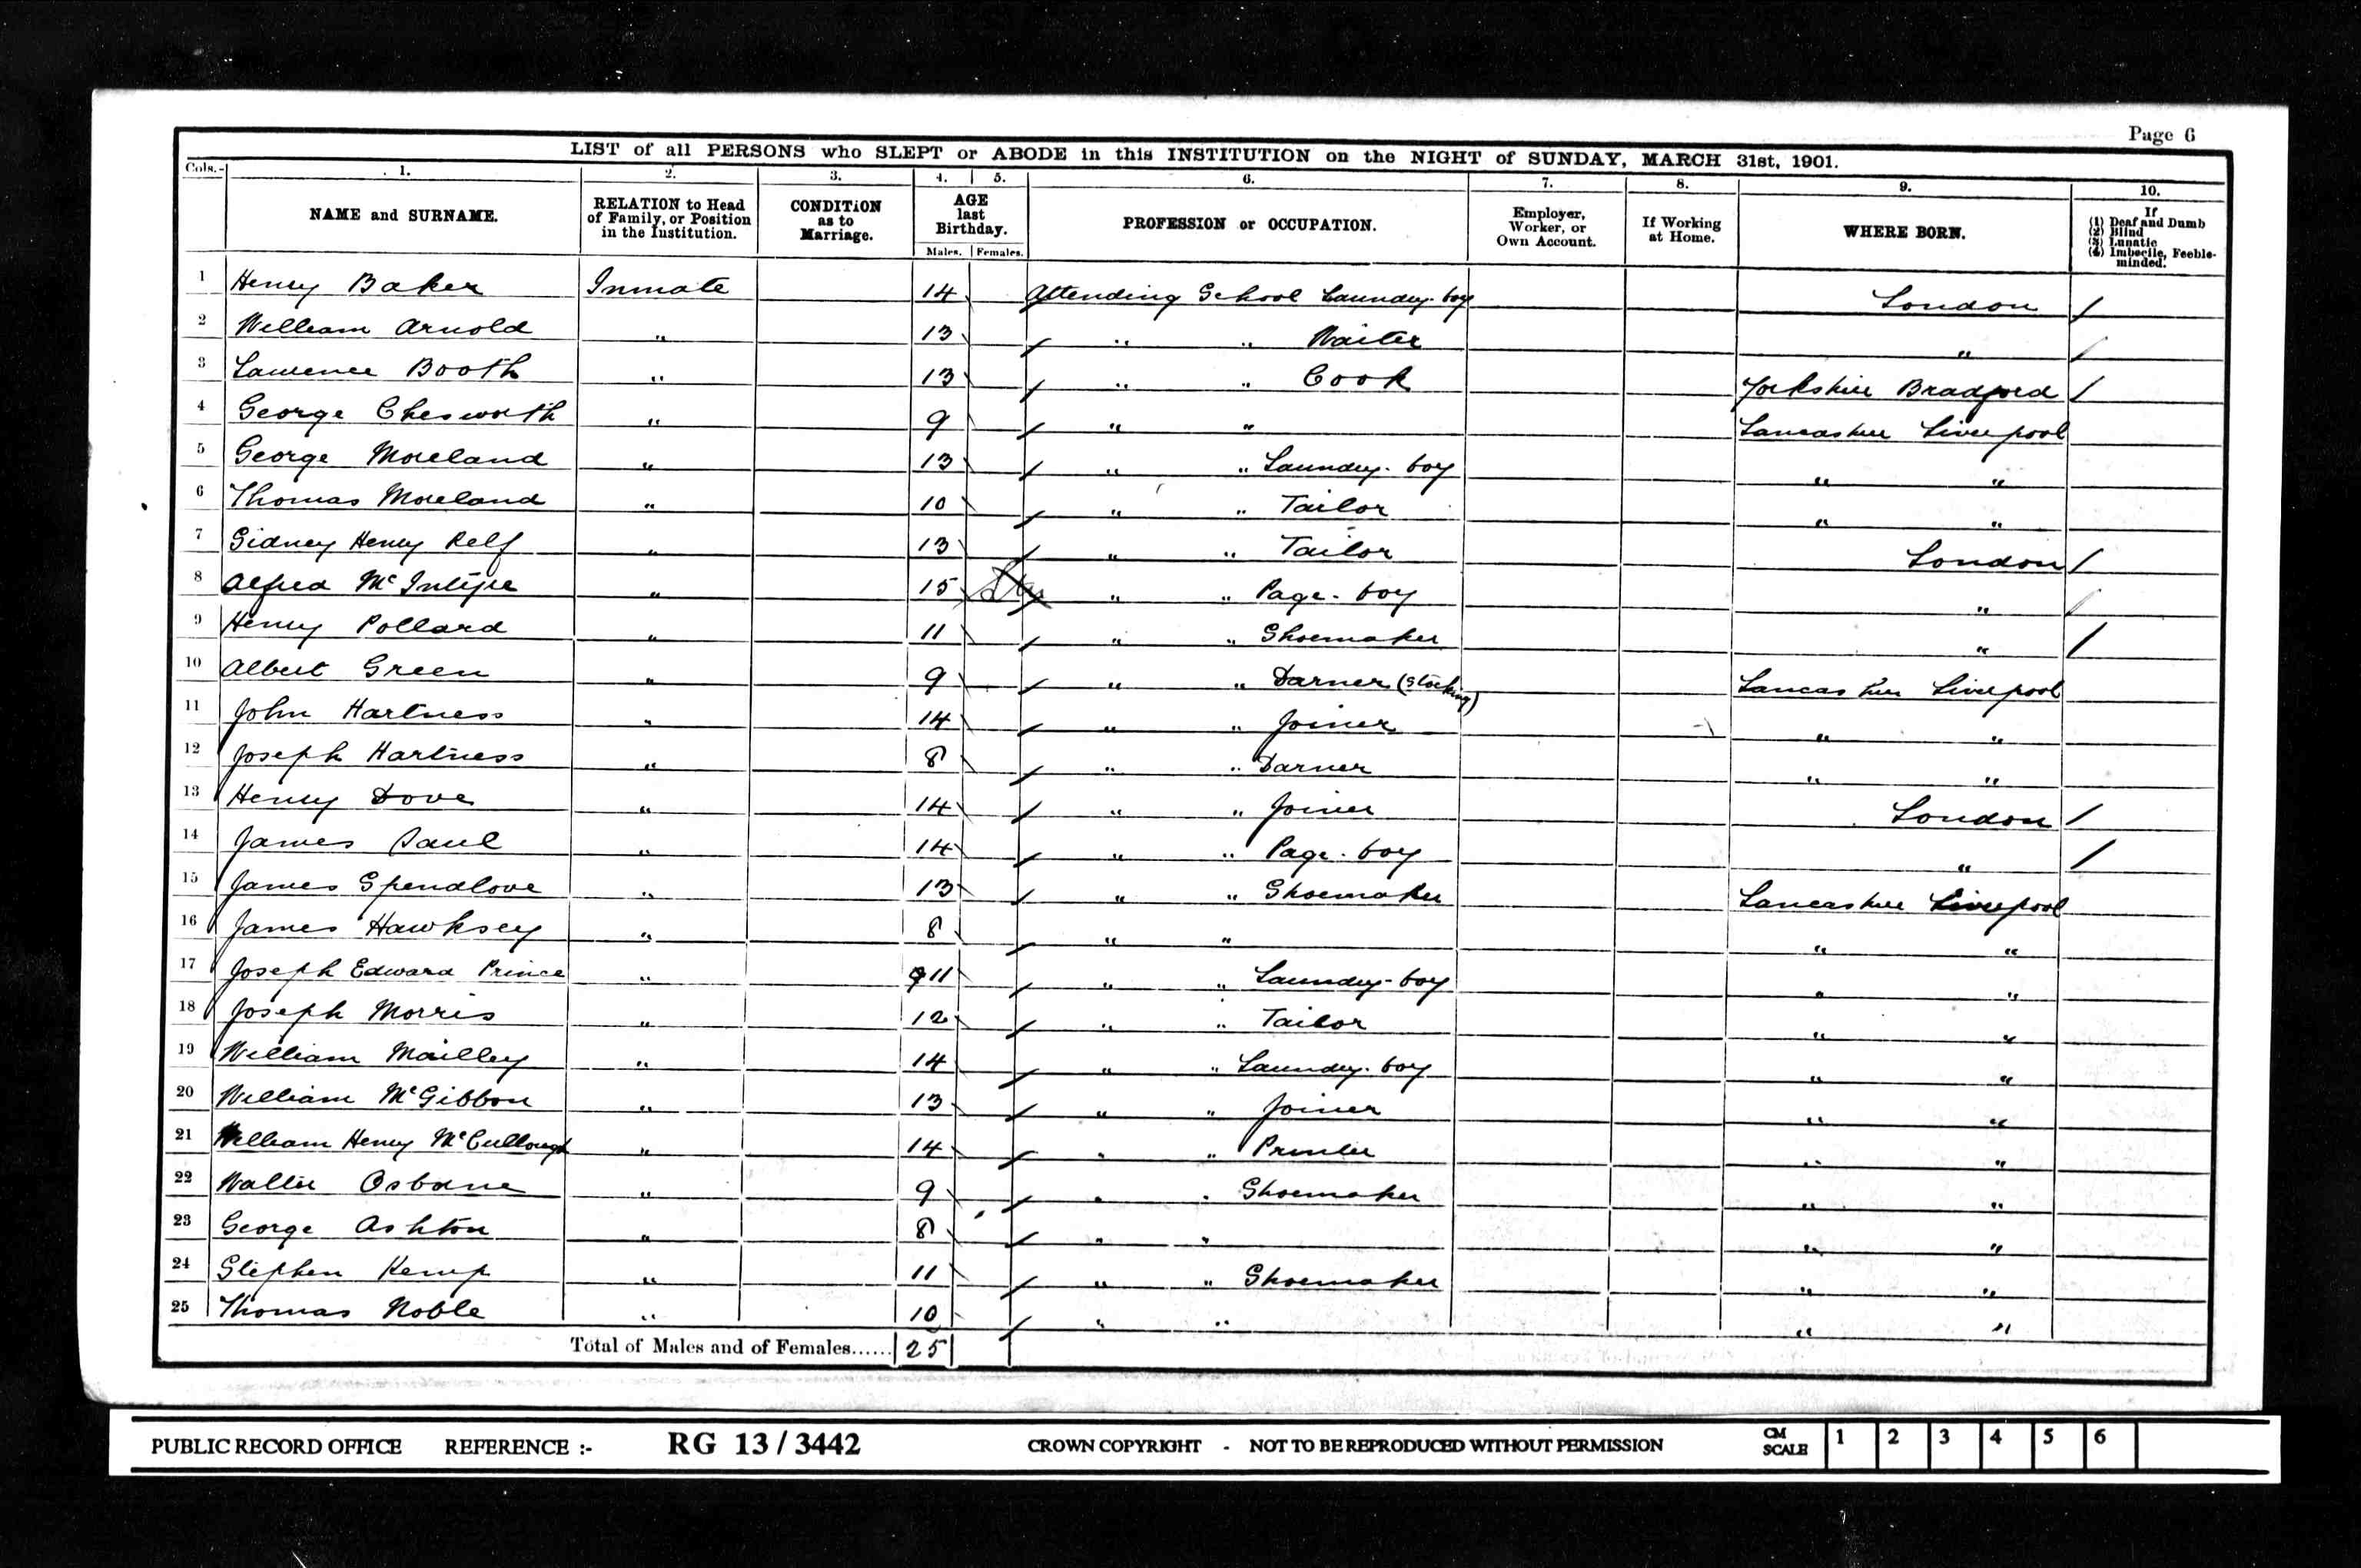 Page 6
LIST of all PERSONS who SLEPT or ABODE in this INSTITUTION on the NIGHT of SUNDAY, MARCH 31st, 1901.
Cols.- 1. 2. 3. 4. 5. 6. 7. 8. 9. 10.
NAME and SURNAME. RELATION to Head of Family, or Position in the Institution. CONDITION as to Marriage. AGE last Birthday. Males. Females. PROFESSION or OCCUPATION. Employer, Worker, or Own Account. If Working at Home. WHERE BORN. If (1) Deaf and Dumb (2) Blind (3) Lunatic (4) Imbecile, Feeble-minded.
1 Henry Baker Inmate 14 Attending School Laundry-boy London
2 William Arnold " 13 " " Waiter "
3 Lawrence Booth " 13 " " Cook Yorkshire Bradford
4 George Chesworth " 9 " " Lancashire Liverpool
5 George Moreland " 13 " " Laundry-boy " "
6 Thomas Moreland " 10 " " Tailor " "
7 Sidney Henry Relf " 13 " " Tailor London
8 Alfred McIntyre " 15 " " Page-boy "
9 Henry Pollard " 11 " " Shoemaker "
10 Albert Green " 9 " " Darner (Stocking) Lancashire Liverpool
11 John Hartness " 14 " " Joiner " "
12 Joseph Hartness " 8 " " Darner " "
13 Henry Dove " 14 " " Joiner London
14 James Saul " 14 " " Page-boy "
15 James Spendlove " 13 " " Shoemaker Lancashire Liverpool
16 James Hawksey " 8 " " " "
17 Joseph Edward Prince " 11 " " Laundry-boy " "
18 Joseph Morris " 12 " " Tailor " "
19 William Mailley " 14 " " Laundry-boy " "
20 William McGibbon " 13 " " Joiner " "
21 William Henry McCullough " 14 " " Printer " "
22 Walter Osborne " 9 " " Shoemaker " "
23 George Ashton " 8 " " " "
24 Stephen Kemp " 11 " " Shoemaker " "
25 Thomas Noble " 10 " " " "
Total of Males and of Females...... 25
PUBLIC RECORD OFFICE REFERENCE :- RG 13 / 3442 CROWN COPYRIGHT - NOT TO BE REPRODUCED WITHOUT PERMISSION CM SCALE 1 2 3 4 5 6